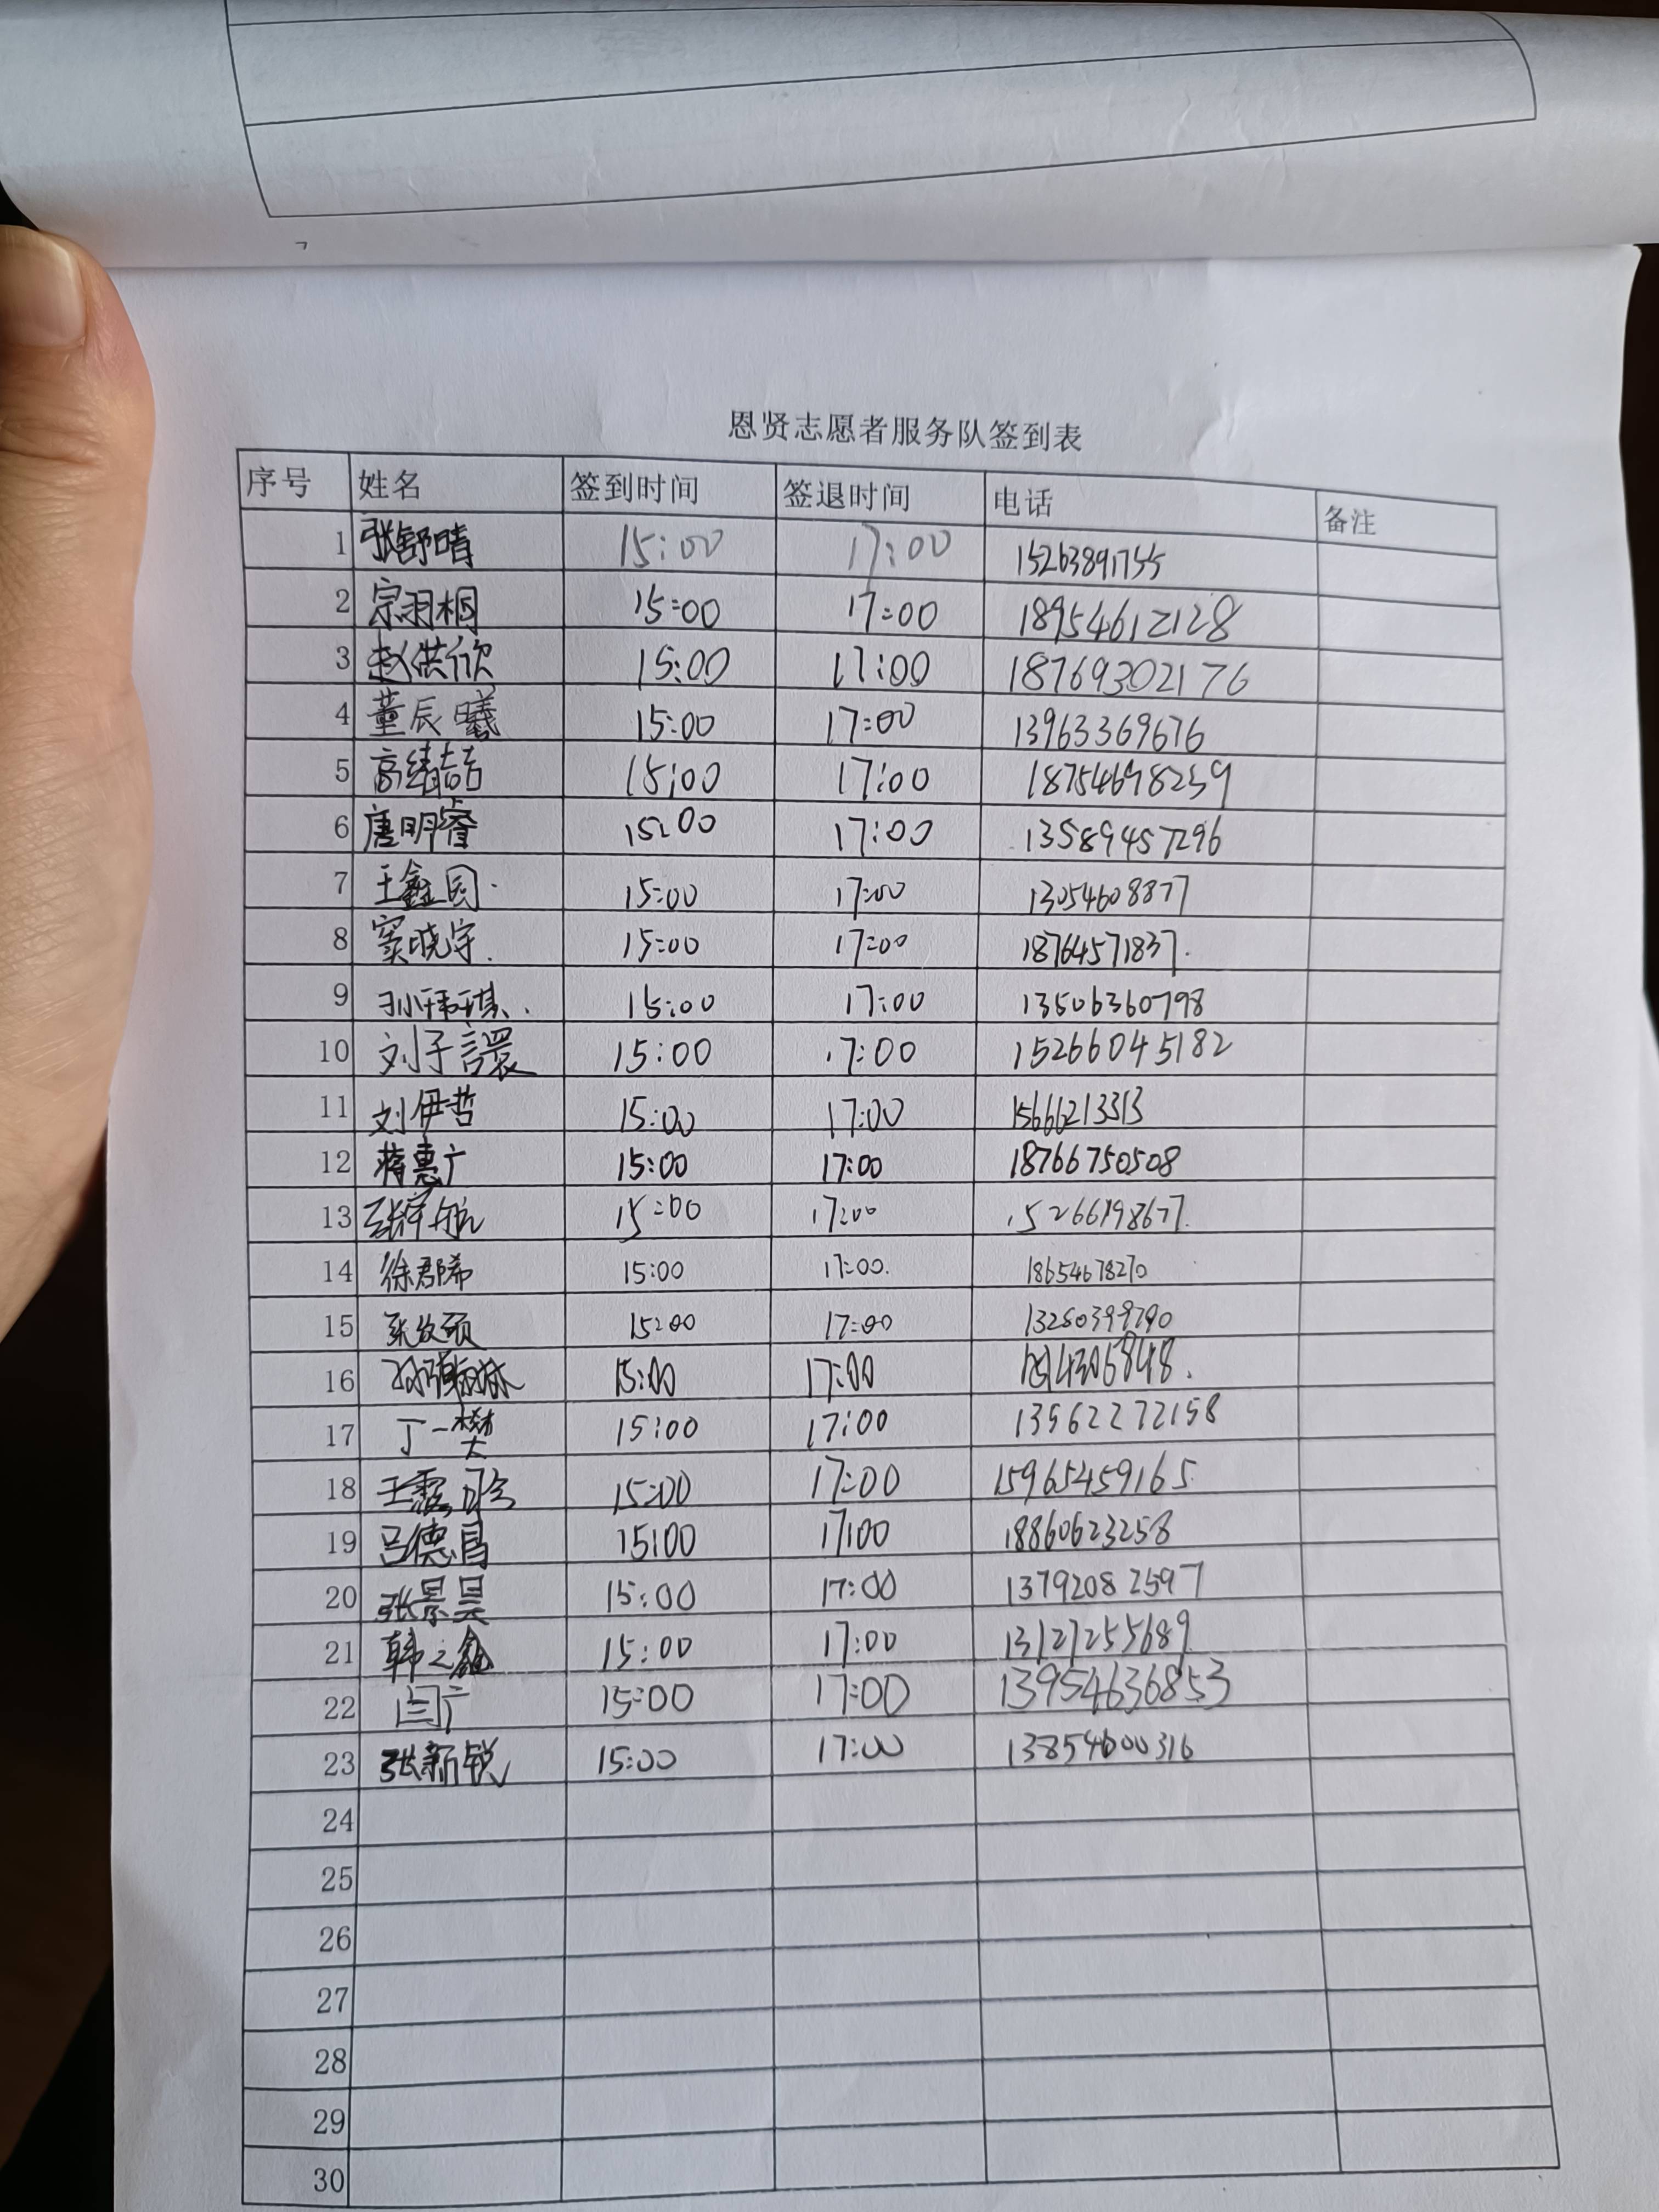 恩贤志愿者服务队签到表
序号 姓名 签到时间 签退时间 电话 备注
1 张舒晴 15:00 17:00 15263891755
2 宗羽桐 15:00 17:00 18954612128
3 赵洪欣 15:00 17:00 18769302176
4 董辰曦 15:00 17:00 13963369676
5 高绪喆 15:00 17:00 18754698259
6 唐明睿 15:00 17:00 13589457296
7 王鑫园 15:00 17:00 13054608877
8 窦晓宇 15:00 17:00 18764571837
9 孙玮琪 15:00 17:00 13506360798
10 刘子譞 15:00 17:00 15266045182
11 刘伊哲 15:00 17:00 15666213313
12 蒋惠广 15:00 17:00 18766750508
13 15:00 17:00 15266198677
14 徐郡希 15:00 17:00 18654678270
15 15:00 17:00
16 15:00 17:00
17 丁一樊 15:00 17:00 13562272158
18 15:00 17:00 15965459165
19 吕德昌 15:00 17:00 18860623258
20 张景昊 15:00 17:00 13792082597
21 韩之鑫 15:00 17:00 13127255689
22 闫广 15:00 17:00 13954636853
23 张新锐 15:00 17:00 13854600316
24
25
26
27
28
29
30